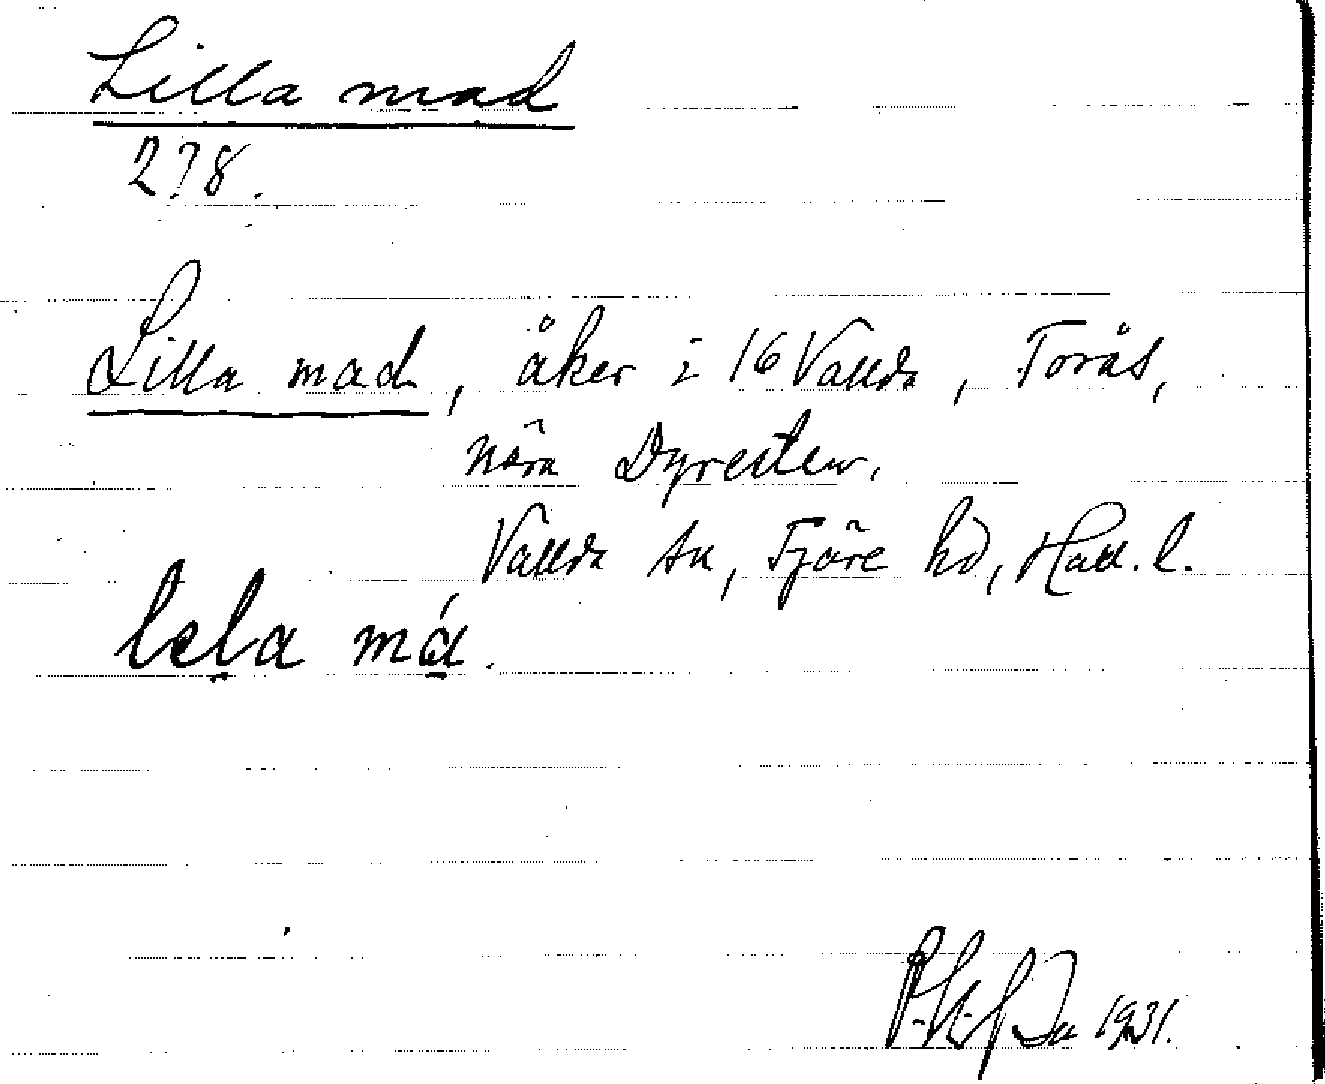 Lilla mad
278.
Lilla mad, åker i 16 Vallda, Torås,
nära Dyresten.
Vallda sn, Fjäre hd, Hall. l.
lela må.
1931.